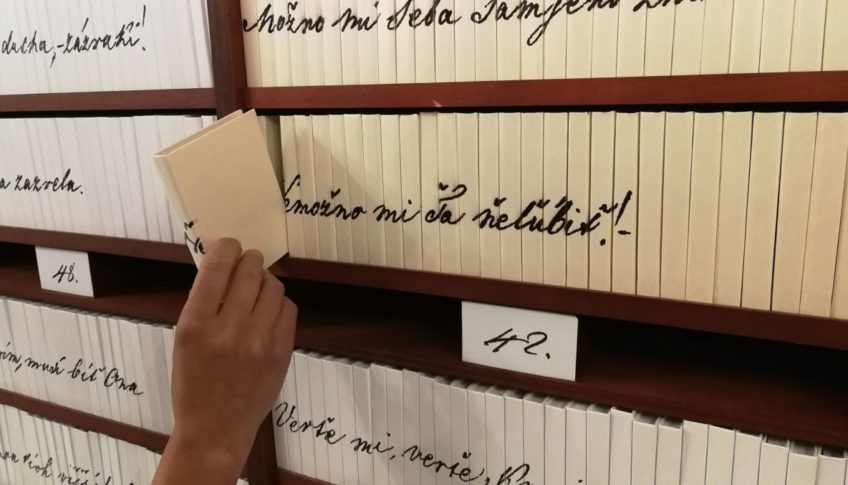 ducha, -zázrakí!
Možno mi Seba Samjeho
a zazrela.
emožno mi Ťa ňelúbiť!-
48.
42.
musí biť Ona
Verte mi, verše,